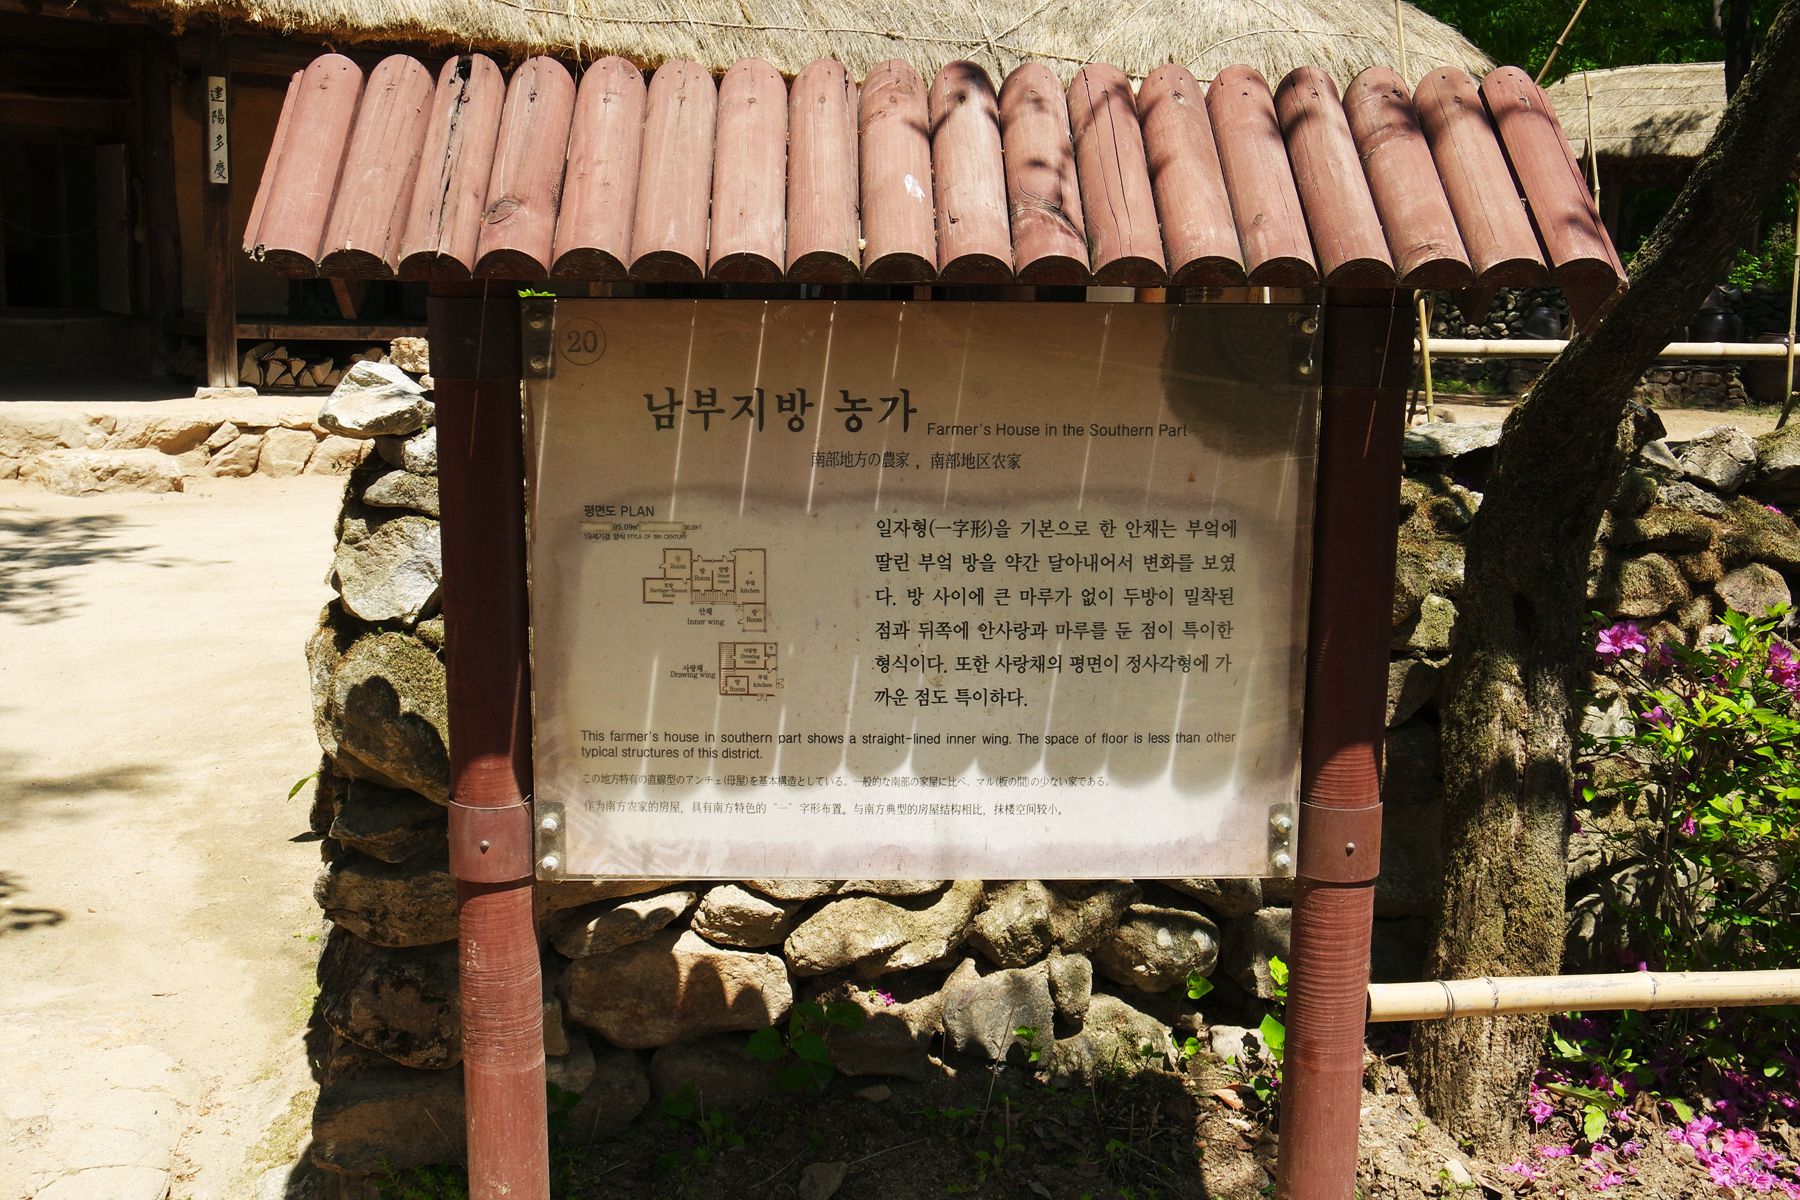 建陽多慶
20
남부지방 농가 Farmer's House in the Southern Part
南部地方の農家, 南部地区农家
평면도 PLAN
95.09㎡ 95.09㎡
19세기경 양식 STYLE OF 19th CENTURY
Room
방 Room
안방 Inner room
부엌 kitchen
토방 Earthen-floored Room
안채 Inner wing
방 Room
사랑방 Drawing room
사랑채 Drawing wing
방 Room
부엌 kitchen
일자형(一字形)을 기본으로 한 안채는 부엌에
딸린 부엌 방을 약간 달아내어서 변화를 보였
다. 방 사이에 큰 마루가 없이 두방이 밀착된
점과 뒤쪽에 안사랑과 마루를 둔 점이 특이한
형식이다. 또한 사랑채의 평면이 정사각형에 가
까운 점도 특이하다.
This farmer's house in southern part shows a straight-lined inner wing. The space of floor is less than other
typical structures of this district.
この地方特有の直線型のアンチェ(母屋)を基本構造としている。一般的な南部の家屋に比べ、マル(板の間)の少ない家である。
作为南方农家的房屋，具有南方特色的“一”字形布置。与南方典型的房屋结构相比，抹楼空间较小。